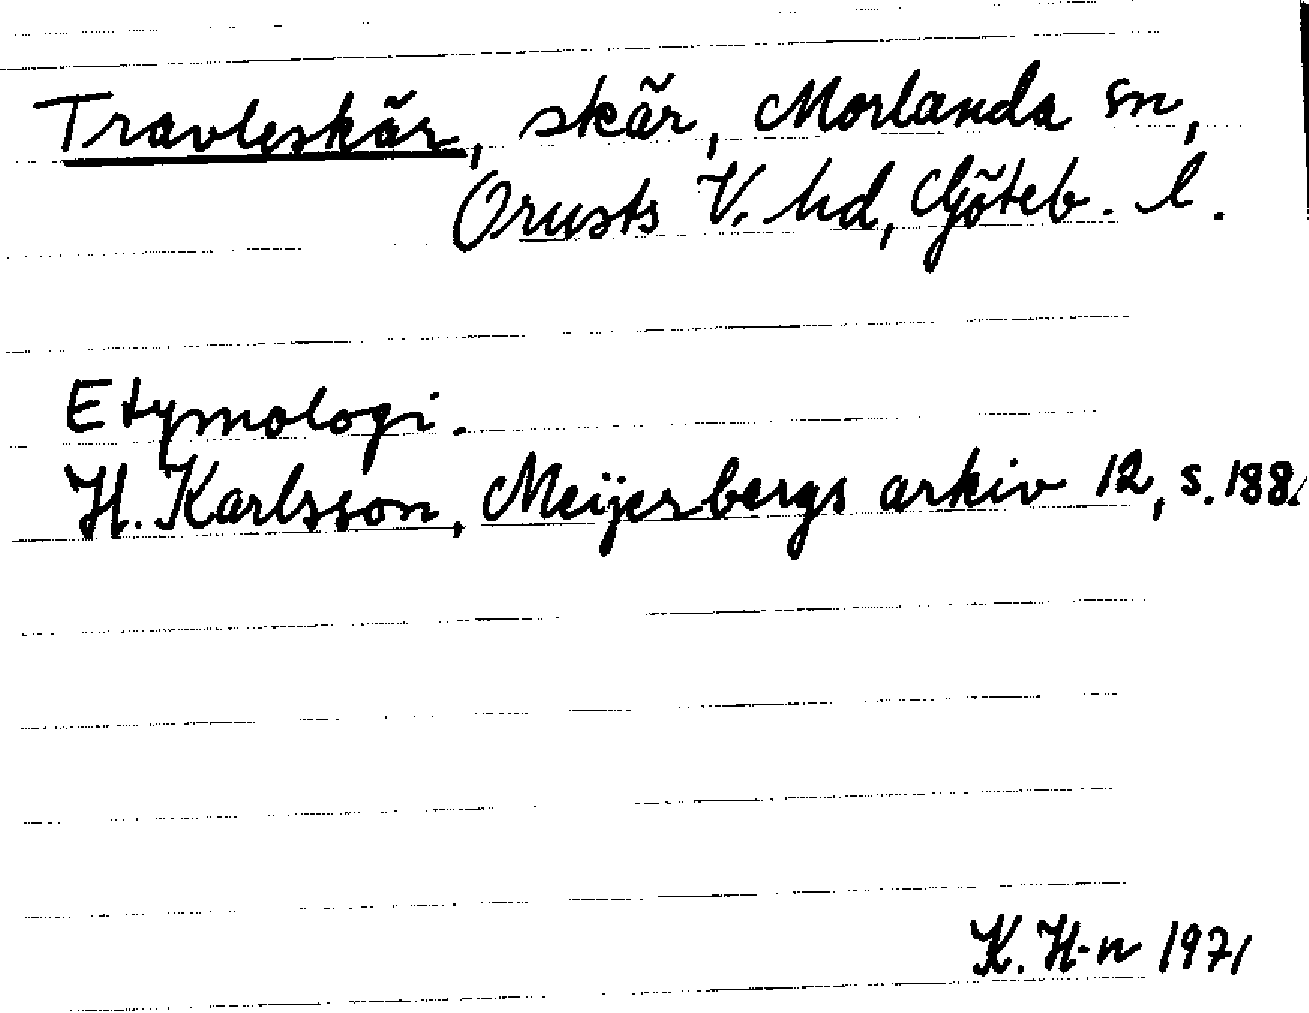 Travleskär, skär, Morlanda sn,
Orusts V. hd, Göteb. l.
Etymologi.
H. Karlsson, Meijerbergs arkiv 12, s. 188.
K. H-n 1971